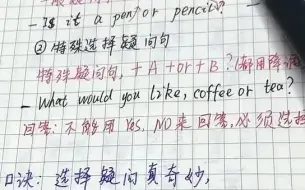 - Is it a pen↗or pencil?
② 特殊选择疑问句
特殊疑问句, + A +or+ B ? (都用降调
- What would you like, coffee or tea?
回答: 不能用 Yes, No来回答,必须选择
口诀: 选择疑问真奇妙,